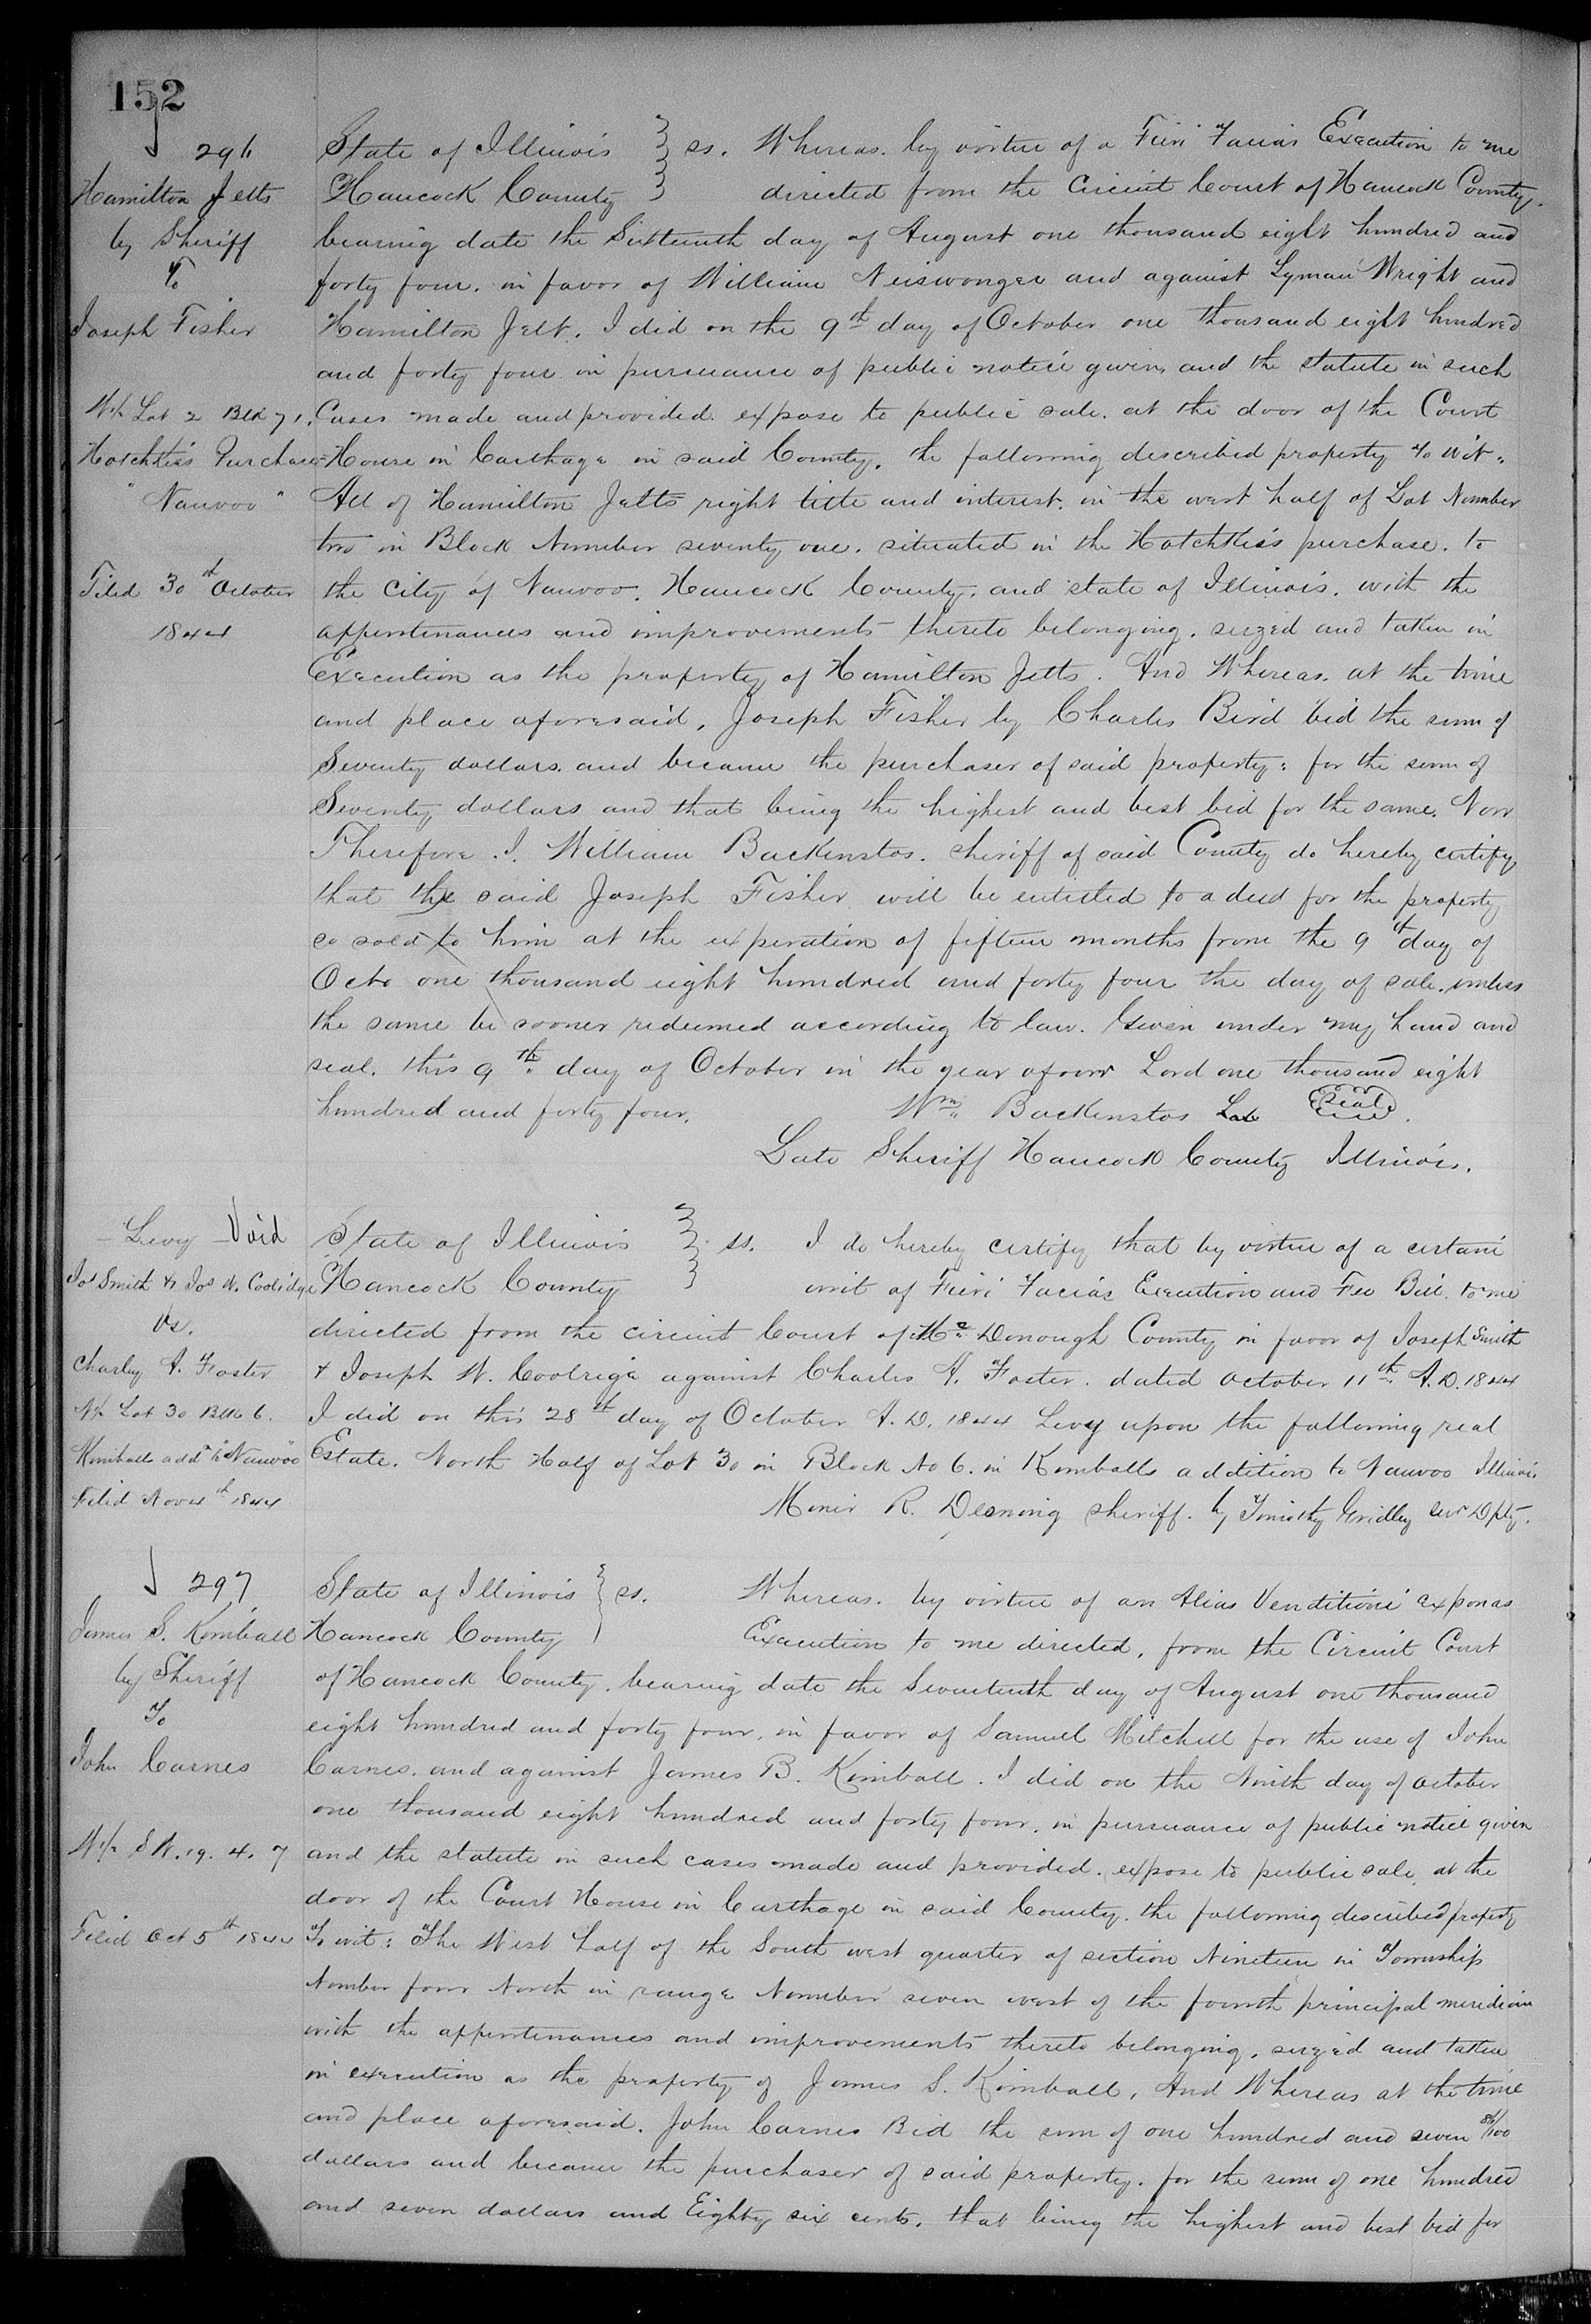 152
296
Hamilton Jetts
by Sheriff
To
Joseph Fisher
W½ Lot 2 Blk 71.
Hotchkiss Purchase
"Nauvoo"
Filed 30th October
1844
State of Illinois } ss. Whereas. by virtue of a Fieri Facias Execution to me
Hancock County } directed from the Circuit Court of Hancock County.
bearing date the Sixteenth day of August one thousand eight hundred and
forty four. in favor of William Neiswonger and against Lyman Wright and
Hamilton Jett. I did on the 9th day of October one thousand eight hundred
and forty four in pursuance of public notice given and the statute in such
Cases made and provided. expose to public sale. at the door of the Court
House in Carthage in said County. the following described property to wit.
All of Hamilton Jetts right title and interest. in the west half of Lot Number
two in Block Number seventy one. situated in the Hotchkiss purchase. to
the city of Nauvoo. Hancock County. and state of Illinois. with the
appertenances and improvements thereto belonging. seized and taken in
Execution as the property of Hamilton Jetts. And Whereas. at the time
and place aforesaid, Joseph Fisher by Charles Bird bid the sum of
Seventy dollars. and became the purchaser of said property: for the sum of
Seventy dollars and that being the highest and best bid for the same. Now
Therefore. I. William Backenstos. sheriff of said County do hereby certify
that the said Joseph Fisher will be entitled to a deed for the property
so sold to him at the experation of fifteen months from the 9th day of
Octo one thousand eight hundred and forty four the day of sale. unless
the same be sooner redeemed according to law. Given under my hand and
seal. this 9th day of October in the year of our Lord one thousand eight
hundred and forty four. Wm Backenstos Late Seal
Late Sheriff Hancock County Illinois.
Levy Void
Jos Smith & Jos W. Coolidge
Vs.
Charley A. Foster
N½ Lot 30 Blk 6.
Kimballs addn to "Nauvoo"
Filed Nov 4th 1844
State of Illinois } ss. I do hereby certify that by virtue of a certain
Hancock County } writ of Fieri Facias Execution and Fee Bill. to me
directed from the circuit Court of Mc Donough County in favor of Joseph Smith
& Joseph W. Coolrige against Charles A. Foster. dated October 11th A.D. 1844
I did on this 28th day of October A.D. 1844 Levy upon the following real
Estate. North Half of Lot 30 in Block No 6. in Kimballs addition to Nauvoo Illinois
Minir R. Deming sheriff. by Timothy Gridley Dpty.
297
James S. Kimball
by Sheriff
To
John Carnes
W½ SW. 19. 4. 7
Filed Oct 5th 1844
State of Illinois } ss. Whereas. by virtue of an Alias Venditioni exponas
Hancock County } Execution to me directed, from the Circuit Court
of Hancock County. bearing date the Seventeenth day of August one thousand
eight hundred and forty four. in favor of Samuel Mitchell for the use of John
Carnes. and against James B. Kimball. I did on the Ninth day of October
one thousand eight hundred and forty four. in pursuance of public notice given
and the statute in such cases made and provided. expose to public sale. at the
door of the Court House in Carthage in said County. the following described property
To wit: The West half of the South west quarter of section Nineteen in Township
Number four North in range Number seven west of the fourth principal meridian
with the appertenances and improvements thereto belonging. seized and taken
in execution as the property of James S. Kimball. And Whereas at the time
and place aforesaid. John Carnes Bid the sum of one hundred and seven 86/100
dollars and became the purchaser of said property. for the sum of one hundred
and seven dollars and Eighty six cents. that being the highest and best bid for